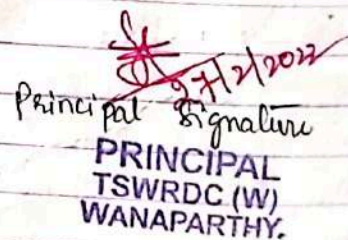 27/2/2022
Principal Signature
PRINCIPAL
TSWRDC (W)
WANAPARTHY.